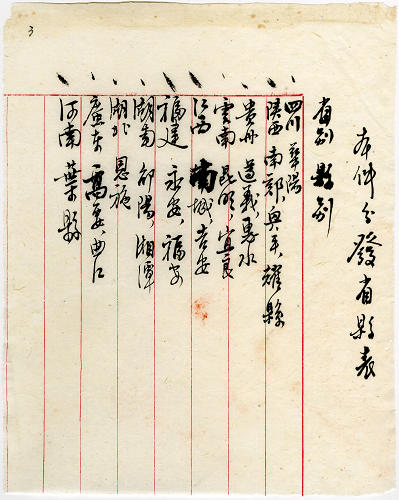 本件分發省縣表
省別 縣別
四川 華陽
陝西 南鄭、興平、耀縣
貴州 遵義、惠水
雲南 昆明、宜良
江西 南城、吉安
福建 永安、福安
湖南 邵陽、湘潭
湖北 恩施
廣東 高要、曲江
河南 葉縣
3